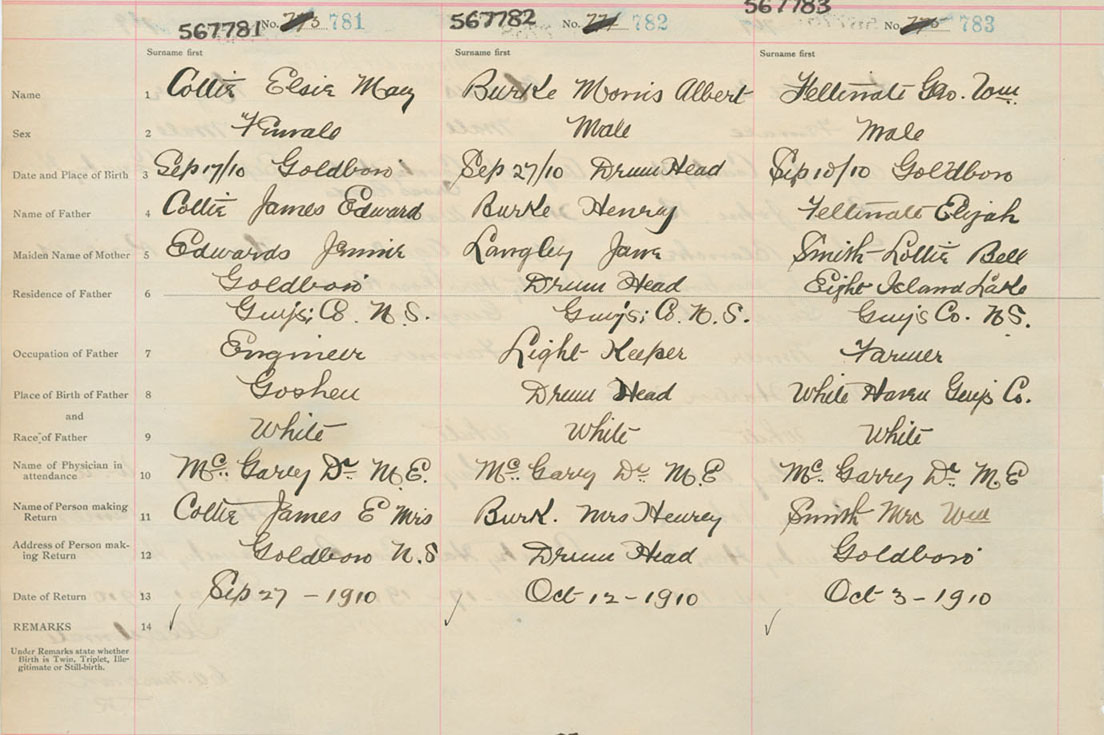 567781 No. 781 567782 No. 782 567783 No. 783
Surname first Surname first Surname first
Name 1 Collie Elsie May Burke Morris Albert Feltmate Geo. Wm.
Sex 2 Female Male Male
Date and Place of Birth 3 Sep 17/10 Goldboro Sep 27/10 Drum Head Sep 10/10 Goldboro
Name of Father 4 Collie James Edward Burke Henry Feltmate Elijah
Maiden Name of Mother 5 Edwards Jennie Langley Jane Smith-Lottie Bell
Goldboro Drum Head Eight Island Lake
Residence of Father 6
Guys; Co. N.S. Guys; Co. N.S. Guys Co. NS.
Occupation of Father 7 Engineer Light-Keeper Farmer
Place of Birth of Father 8 Goshen Drum Head White Haven Guys Co.
and
Race of Father 9 White White White
Name of Physician in
attendance 10 Mc. Garry Dr. M.E. Mc. Garry Dr. M.E Mc. Garry Dr. M.E
Name of Person making
Return 11 Collie James E Mrs Burk. Mrs Henrey Smith Mrs Wm
Address of Person mak-
ing Return 12 Goldboro N.S Drum Head Goldboro
Date of Return 13 Sep 27 - 1910 Oct 12 - 1910 Oct 3 - 1910
REMARKS 14
Under Remarks state whether
Birth is Twin, Triplet, Ille-
gitimate or Still-birth.